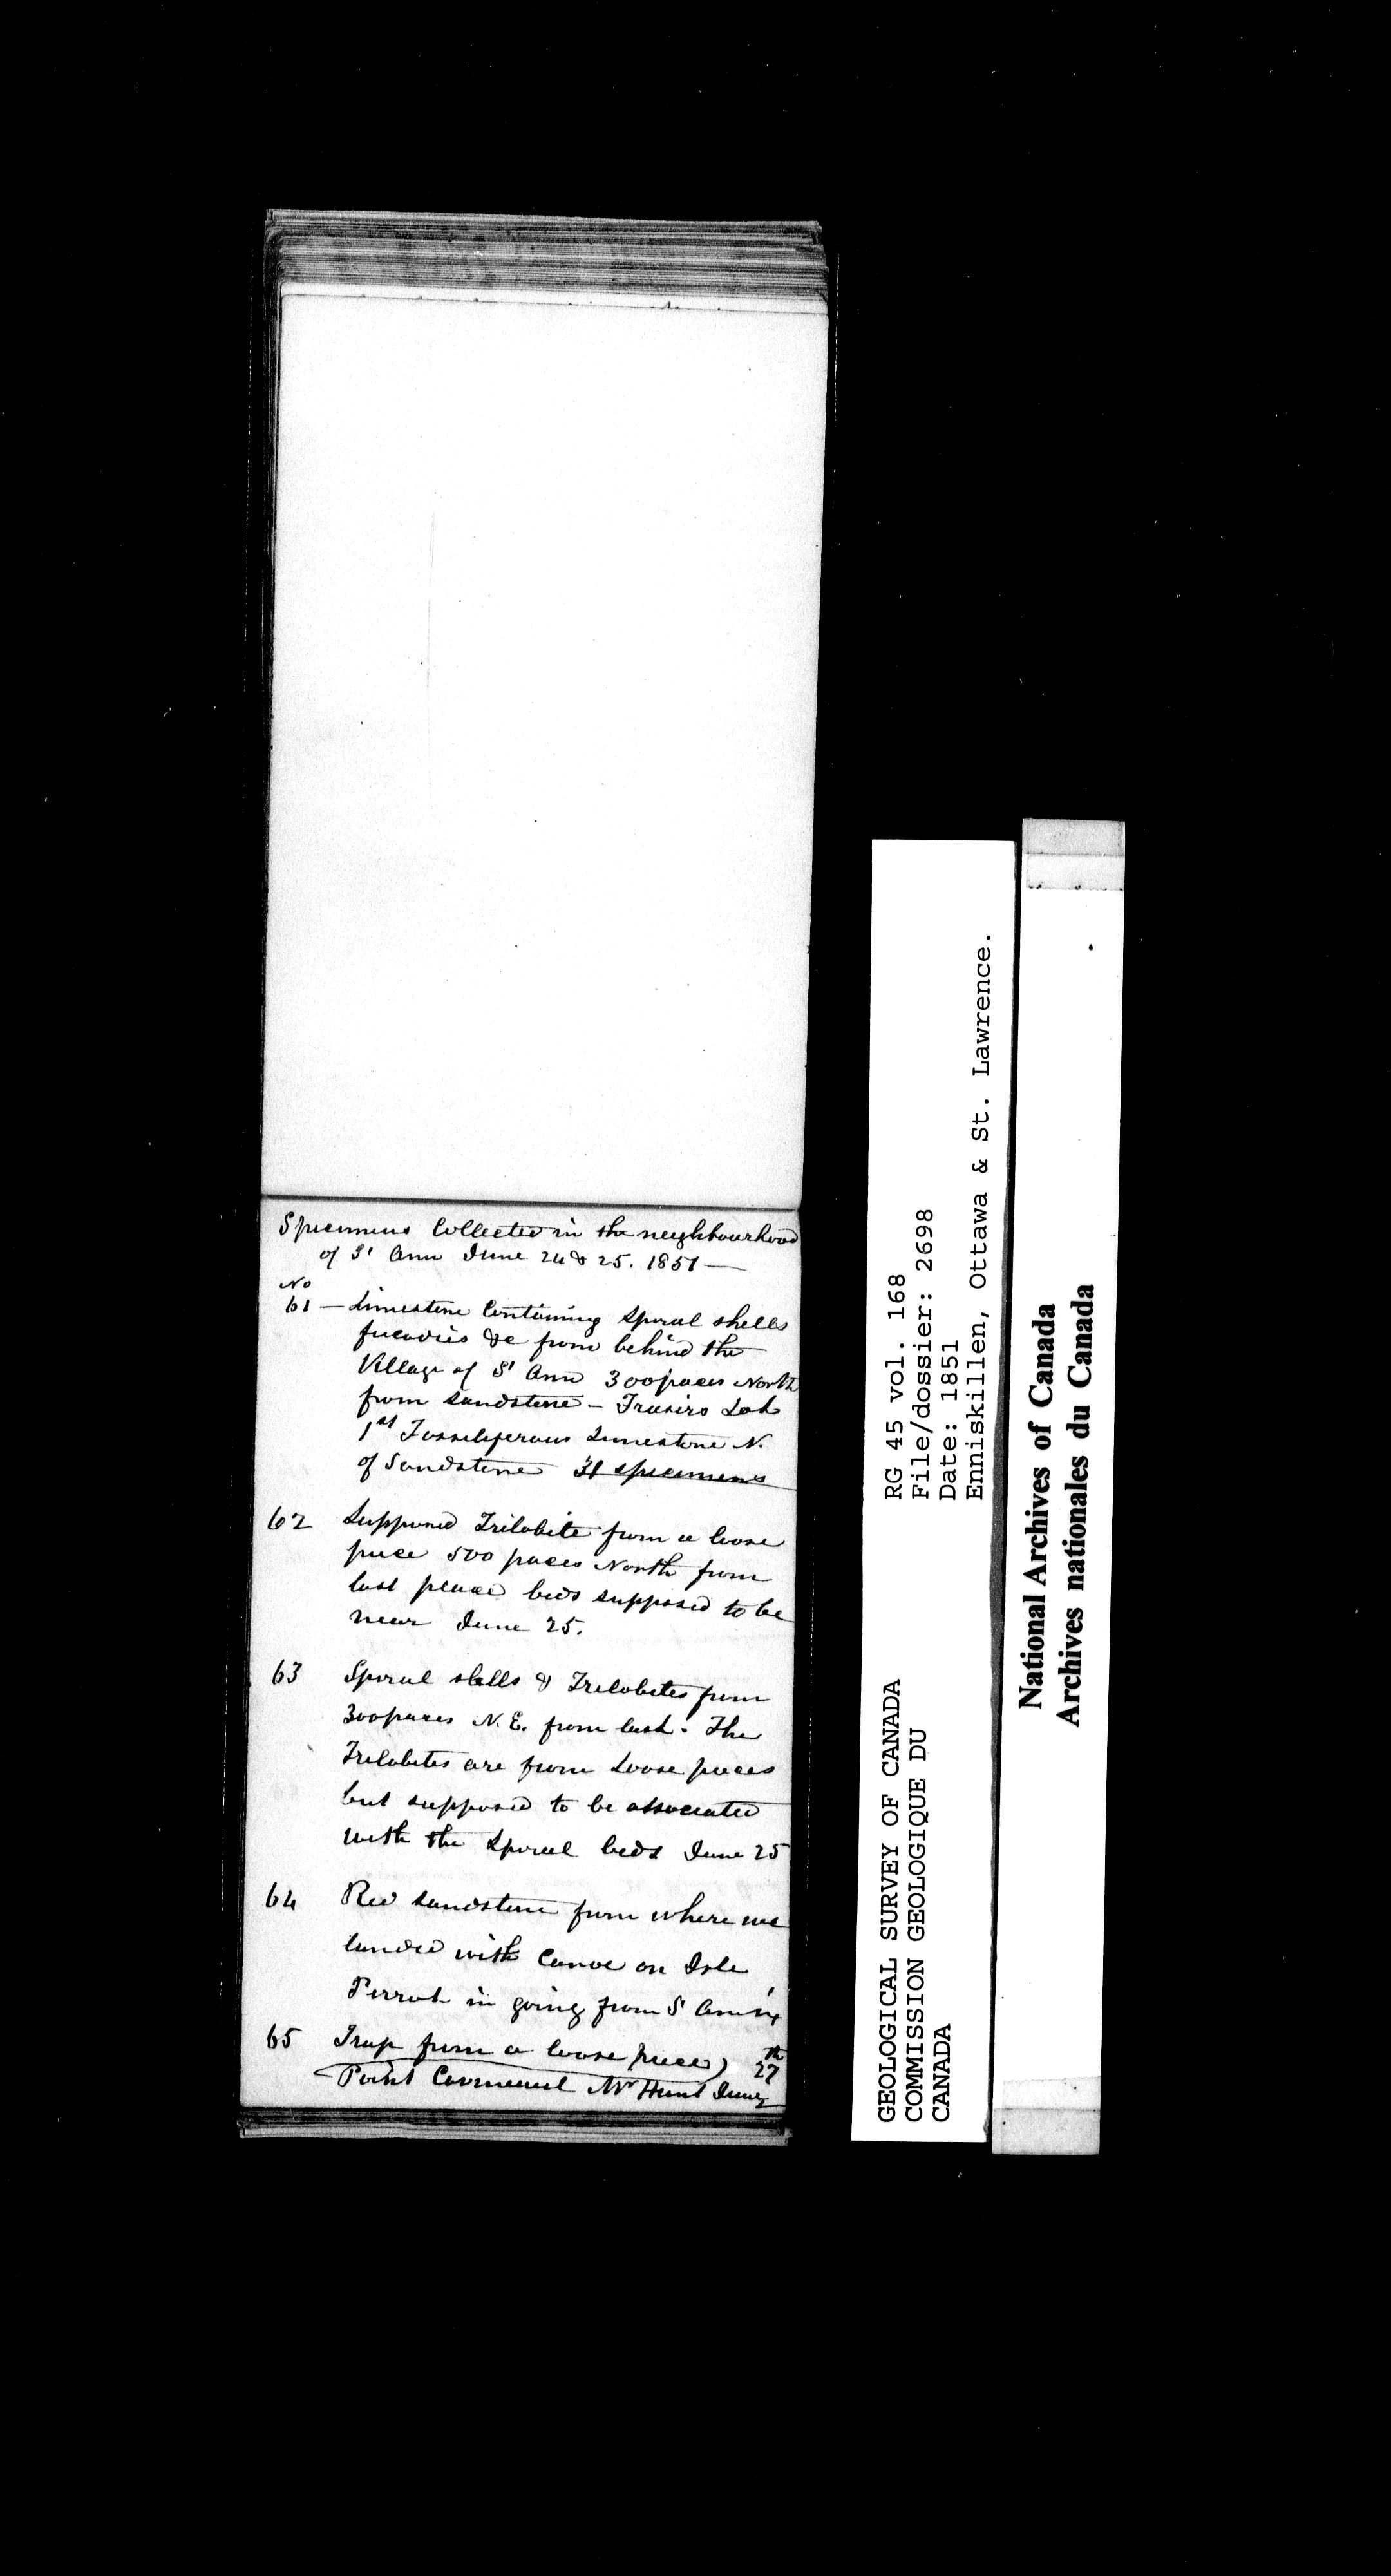 Specimens Collected in the neighbourhood
of St Ann June 24 & 25. 1851 —
No
61 — Limestone Containing Spiral shells
fucodies &c from behind the
Village of St Ann 300 paces North
from Sandstone —
1st Fossiliferous Limestone N.
of Sandstone 31 specimens
62 Supposed Trilobite from a loose
piece 500 paces North from
last place beds supposed to be
near June 25.
63 Spiral shells & Trilobites from
300 paces N.E. from last. The
Trilobites are from Loose pieces
but supposed to be associated
with the Spiral beds June 25
64 Red Sandstone from where we
landed with Canoe on Isle
Perrot in going from St Ann's
65 Trap from a loose piece) 27th
Point Mr Hunt June
GEOLOGICAL SURVEY OF CANADA
COMMISSION GEOLOGIQUE DU
CANADA
RG 45 vol. 168
File/dossier: 2698
Date: 1851
Enniskillen, Ottawa & St. Lawrence.
National Archives of Canada
Archives nationales du Canada